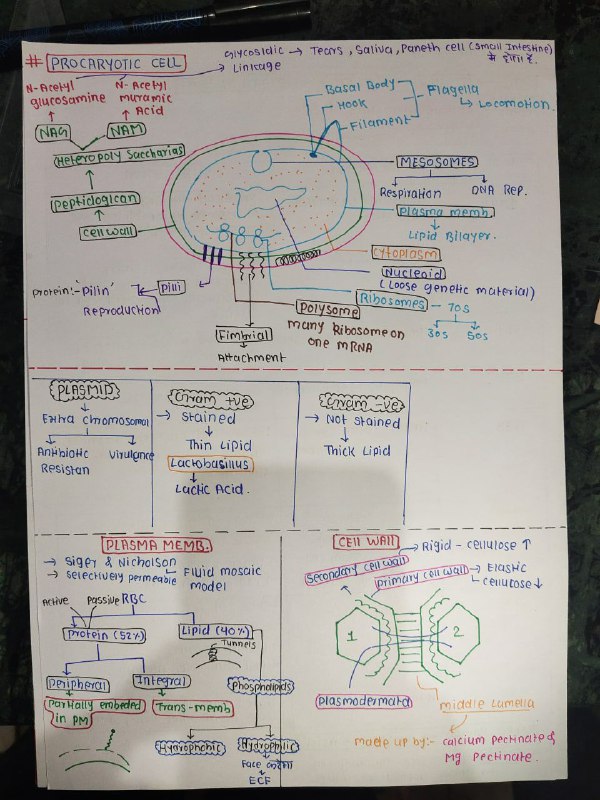 # PROCARYOTIC CELL
Glycosidic → Tears, Saliva, Paneth cell (Small Intestine)
में होता है.
→ Linkage
N-Acetyl glucosamine
N-Acetyl muramic Acid
NAG
NAM
Heteropoly Saccharias
Peptidoglcan
cell wall
Basal Body
Hook
Filament
Flagella
↳ Locomotion.
MESOSOMES
Respiration
DNA Rep.
plasma memb.
Lipid Bilayer.
Cytoplasm
Nucleoid
(Loose genetic material)
Ribosomes - 70s
30s 50s
Polysome
many Ribosome on
one mRNA
protein:- 'Pilin'
Pilli
Reproduction
Fimbrial
Attachment
PLASMID
Extra chromosomal
Antibiotic Resistan
Virulance
Gram +ve
→ Stained
Thin Lipid
Lactobasillus
Lactic Acid.
Gram -ve
→ Not stained
Thick Lipid
PLASMA MEMB.
→ Siger & Nicholson
→ selectively permeable
Fluid mosaic
model
Active Passive RBC
Protein (52%)
Lipid (40%)
Tunnels
Peripheral
Integral
Phospholipids
partially embeded
in PM
Trans-memb
Hydrophobic
Hydrophilic
ECF
CELL WALL
→ Rigid - cellulose ↑
Secondary cell wall
primary cell wall
→ Elastic
cellulose ↓
1
2
plasmodermata
middle lamella
made up by:- calcium pectinate &
Mg Pectinate.